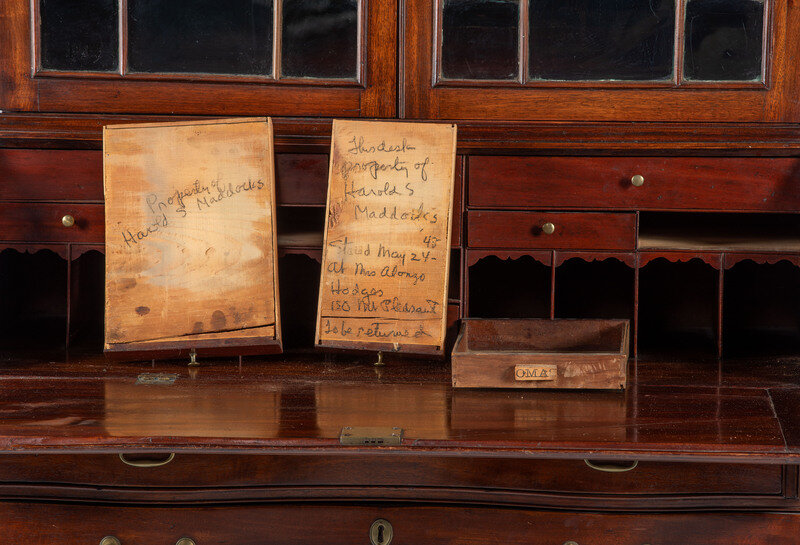 Property of
Harold S Maddocks
This desk
property of
Harold S
Maddocks
'43
Stored May 24-
At Mrs Alonzo
Hodges
150 Mt Pleasant
To be returned
OMA